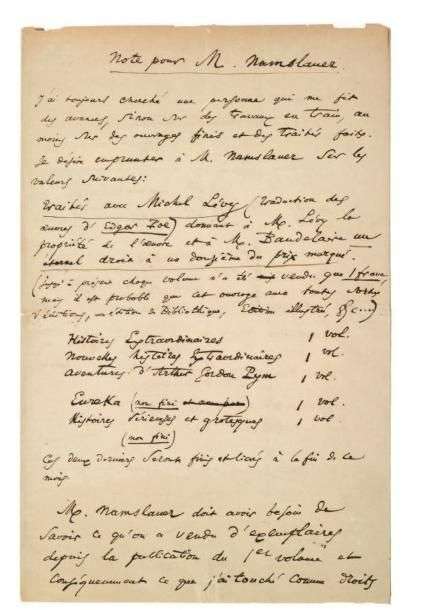 Note pour M. Namslauer.
J'ai toujours cherché une personne qui me fît
des avances, sinon sur des travaux en train, au
moins sur des ouvrages finis et des traités faits.
Je désire emprunter à M. Namslauer sur les
valeurs suivantes:
Traités avec Michel Lévy (traduction des
œuvres d'Edgar Poe) donnant à M. Lévy la
propriété de l'œuvre et à M. Baudelaire un
éternel droit à un douzième du prix marqué.
(jusqu'à présent chaque volume n'a été vendu que 1 franc,
mais il est probable que cet ouvrage aura toutes sortes
d'éditions, édition de Bibliothèque, Edition illustrée, &c...)
Histoires Extraordinaires 1 vol.
Nouvelles histoires Extraordinaires 1 vol.
Aventures d'Arthur Gordon Pym 1 vol.
Eureka (non fini) 1 vol.
Histoires sérieuses et grotesques 1 vol.
(non fini)
Ces deux derniers seront finis et livrés à la fin de ce
mois
M. Namslauer doit avoir besoin de
savoir ce qu'on a vendu d'exemplaires
depuis la publication du 1er volume et
conséquemment ce que j'ai touché comme droits